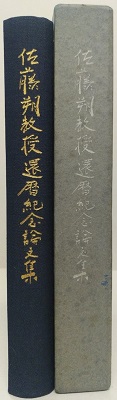 佐藤朔教授還暦紀念論文集
佐藤朔教授還暦紀念論文集